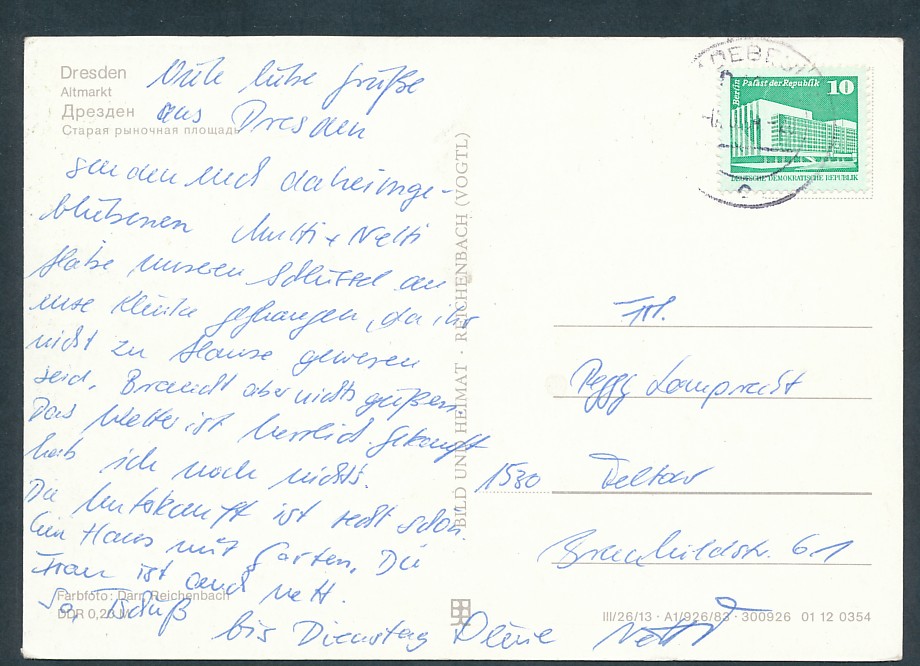 Dresden
Altmarkt
Дрезден
Старая рыночная площадь
Viele liebe Grüße
aus Dresden
senden euch daheimge-
bliebenen Mutti + Netti
Habe unseren Schlüssel an
eure Klinke gehangen, da ihr
nicht zu Hause gewesen
seid. Braucht aber nichts gießen
Das Wetter ist herrlich. Gekauft
hab ich noch nichts.
Die Unterkunft ist sehr schön.
Ein Haus mit Garten. Die
Frau ist auch nett.
So, Tschüß
bis Dienstag Deine Netti
Farbfoto: Darr, Reichenbach
DDR 0,20 M
BILD UND HEIMAT · REICHENBACH (VOGTL)
Berlin Palast der Republik 10
DEUTSCHE DEMOKRATISCHE REPUBLIK
Peggy Lamprecht
1530 Teltow
6.1
III/26/13 · A1/926/83 · 300926 01 12 0354